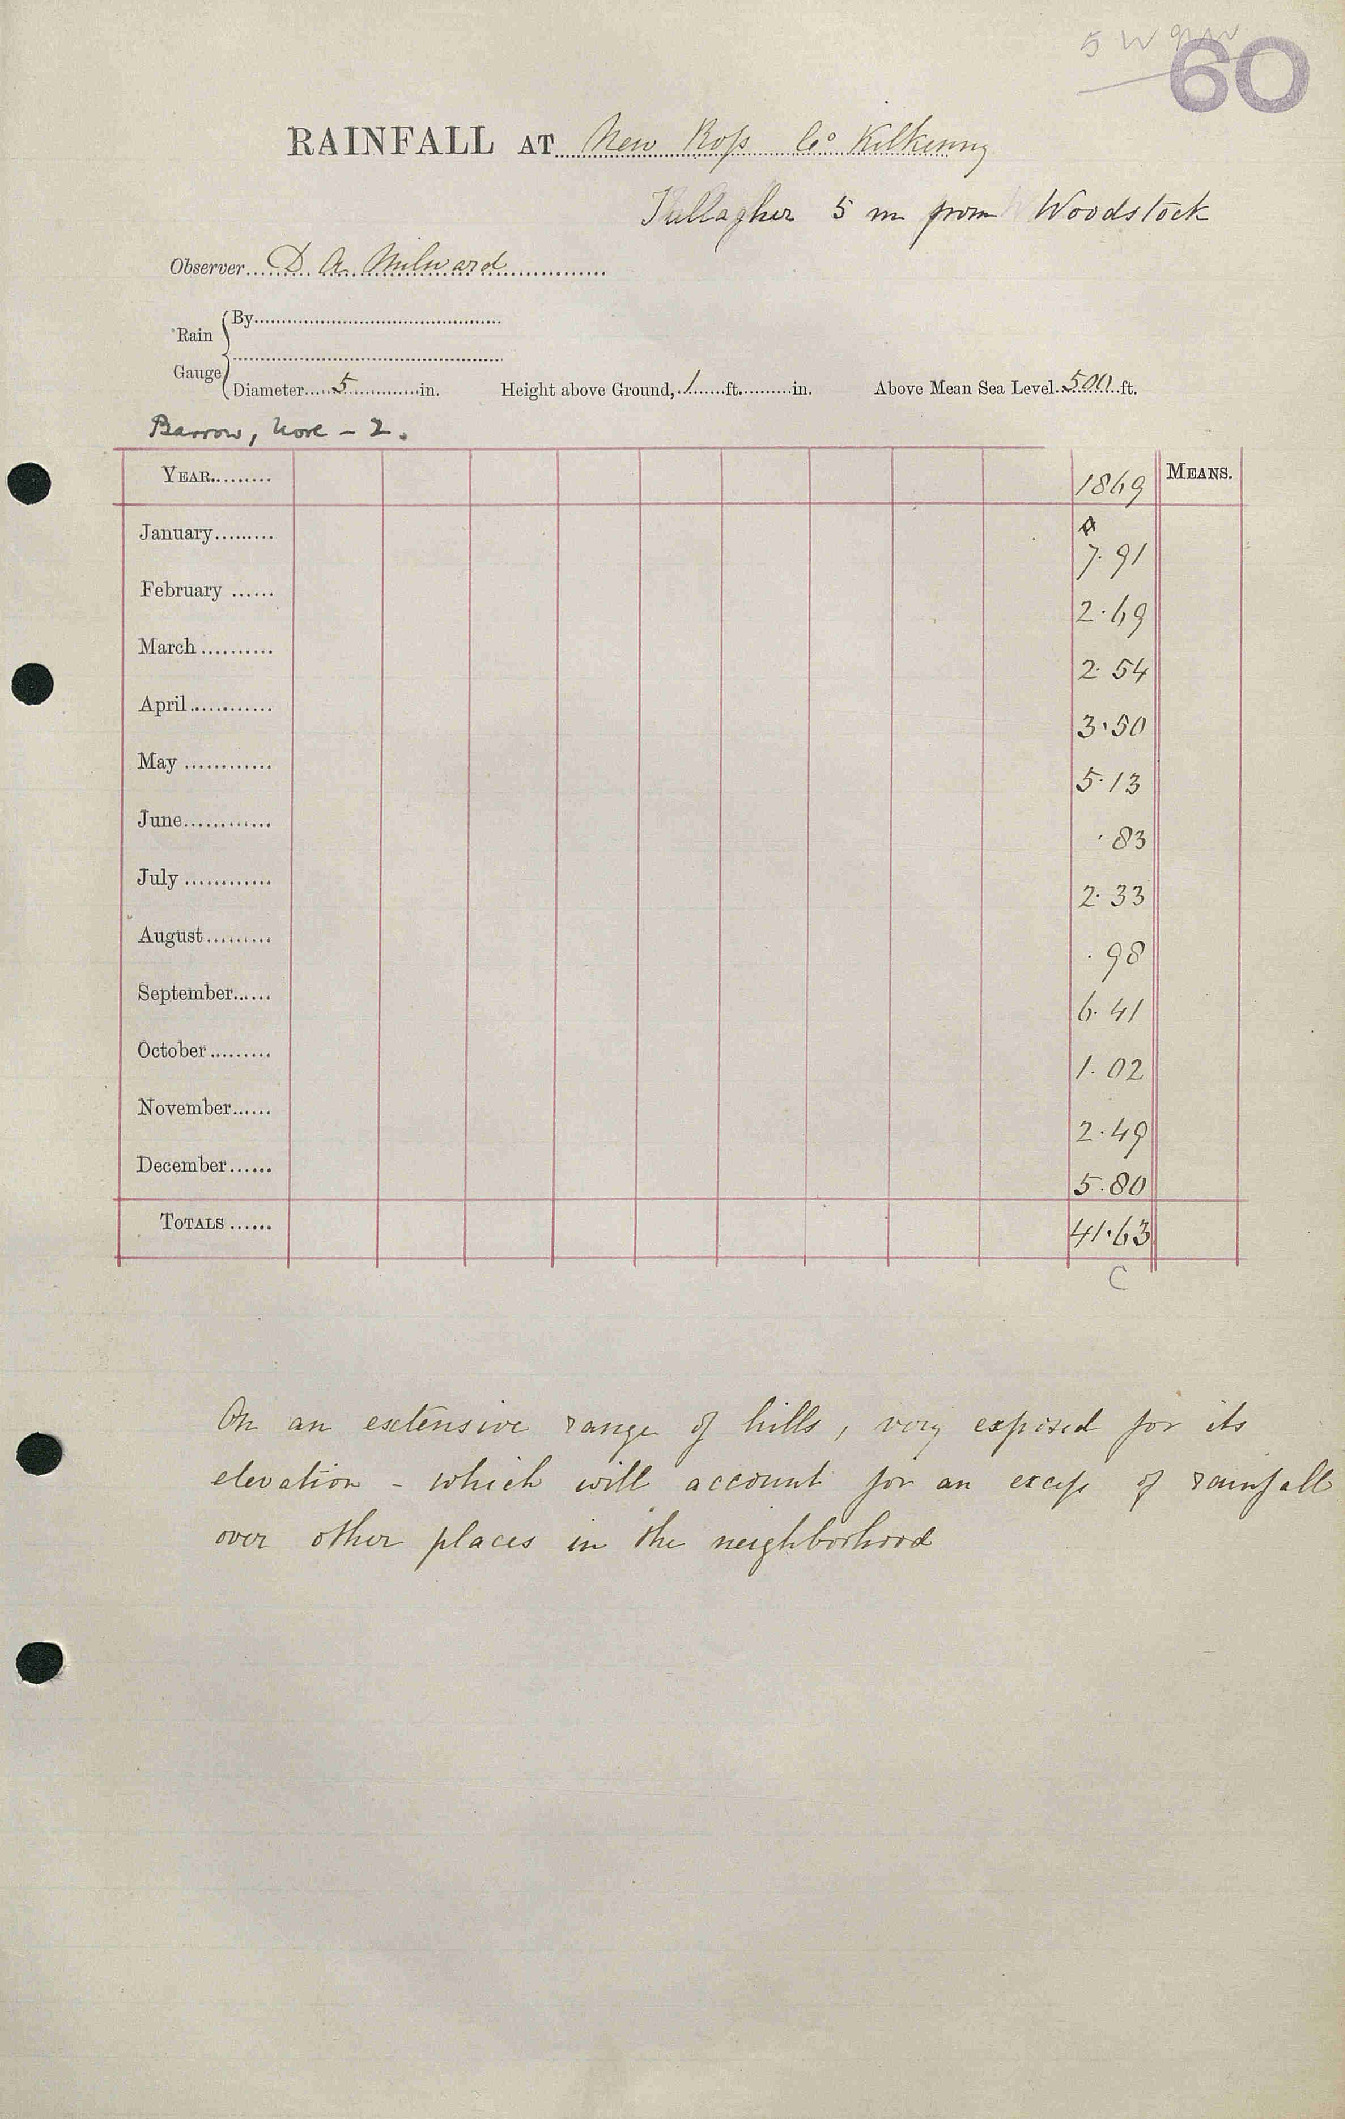 60
RAINFALL AT New Ross Co Kilkenny
Tullagher 5 m from Woodstock
Observer D A Milward
Rain Gauge
By
Diameter 5 in. Height above Ground, 1 ft. in. Above Mean Sea Level 500 ft.
Barrow, Nore - 2.
YEAR 1869 MEANS.
January 7.91
February 2.69
March 2.54
April 3.50
May 5.13
June .83
July 2.33
August .98
September 6.41
October 1.02
November 2.49
December 5.80
TOTALS 41.63
C
On an extensive range of hills, very exposed for its
elevation - which will account for an excess of rainfall
over other places in the neighborhood